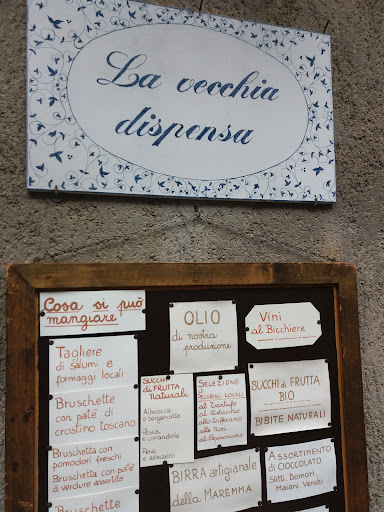 La vecchia
dispensa
Cosa si può
mangiare
Tagliere
di salumi e
formaggi locali
Bruschette
con patè di
crostino toscano
Bruschetta con
pomodori freschi
Bruschetta con patè
di verdure assortite
Bruschette
OLIO
di nostra
produzione
Vini
al Bicchiere
SUCCHI
di FRUTTA
Naturali
Albicocca
e bergamotto
Pesca
e coriandolo
Pera
e zenzero
SELEZIONE
di
PECORINI LOCALI
al Tartufo
al Pistacchio
allo Zafferano
alle Noci
al Peperoncino
SUCCHI di FRUTTA
BIO
BIBITE NATURALI
BIRRA artigianale
della MAREMMA
ASSORTIMENTO
di CIOCCOLATO
Slitti, Domori,
Maiani, Venchi